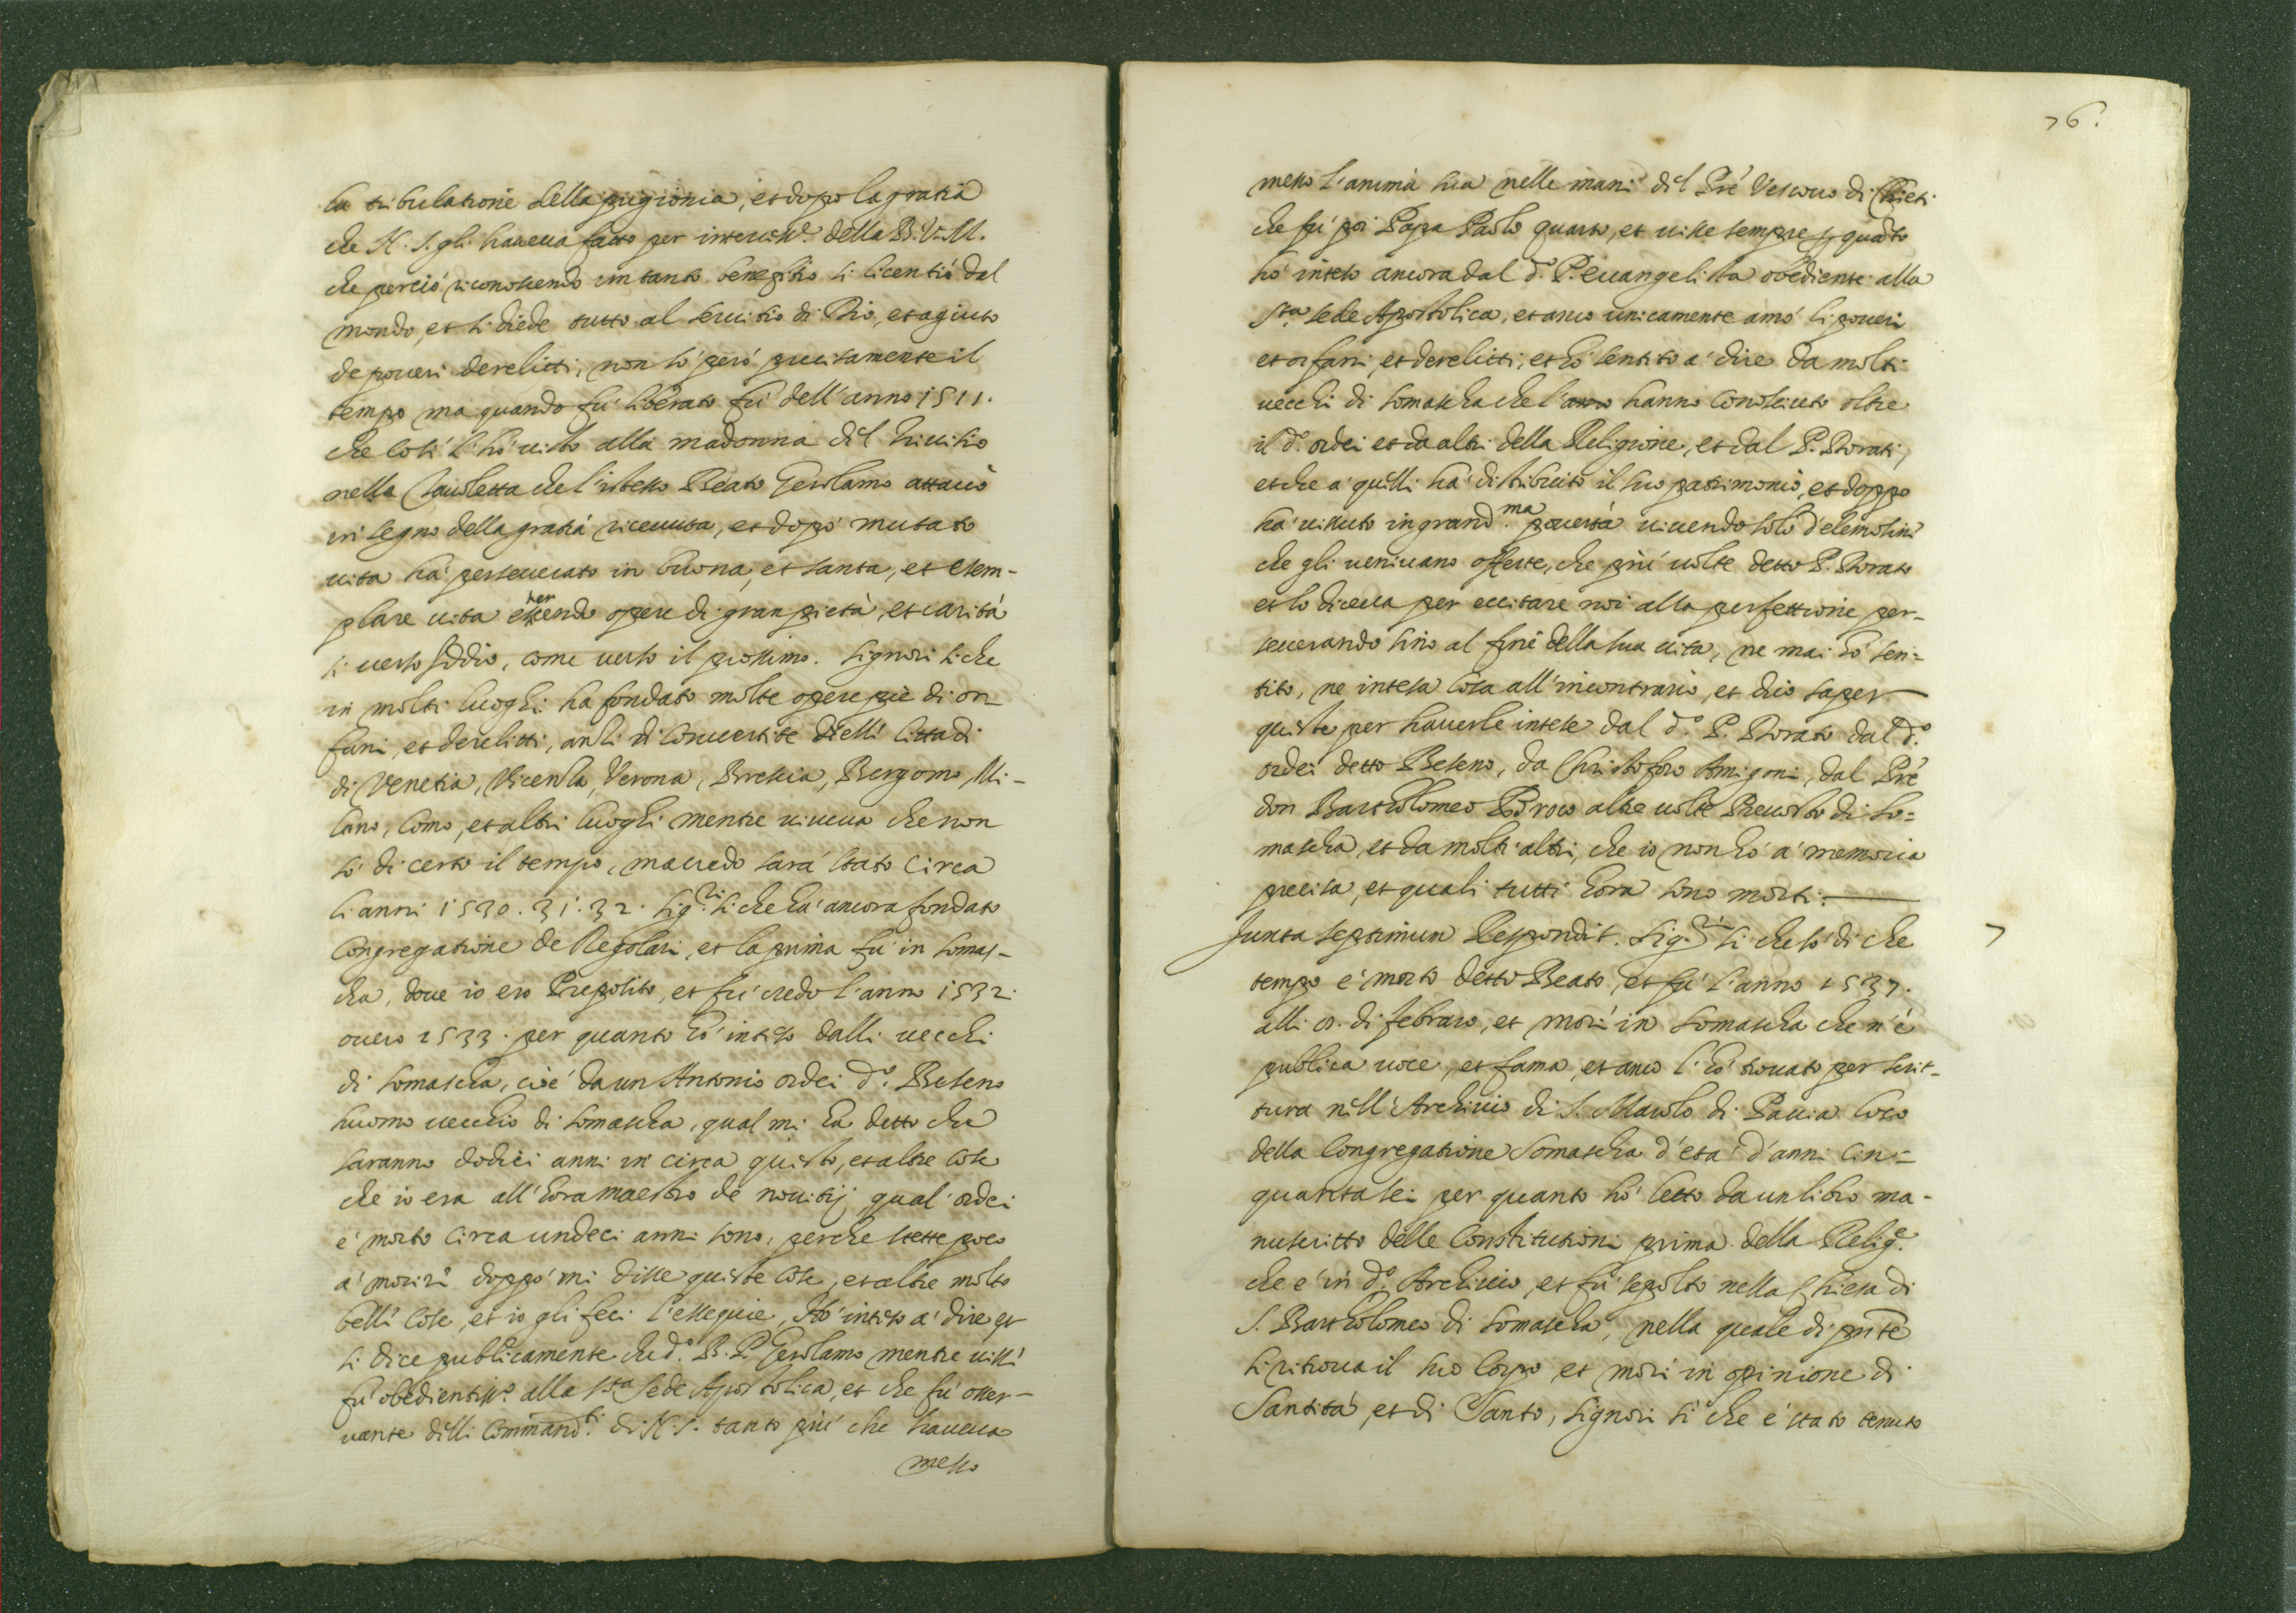 la tribulatione della prigionia, et dopo la gratia
che N. S. gli haueua fatto per interciss.e della B. V. M.
che perciò riconoscendo un tanto benefitio si licentiò dal
mondo, et si diede tutto al seruitio di Dio, et agiuto
de poueri derelitti, non sò però precisamente il
tempo ma quando fù liberato fù dell'anno 1511.
che così l'hò uisto alla madonna dil Triuisio
nella Tauoletta che l'istesso Beato Gerolamo attacò
in segno della gratia riceuuta, et dopò mutato
uita hà perseuerato in buona, et santa, et esem-
plare uita essercendo opere di gran pietà, et carità
si uerso Iddio, come uerso il prossimo. Signori si che
in molti luoghi ha fondato molte opere pie di or
fani, et derelitti, anzi di conuertite delli Città di
di Venetia, Vicenza, Verona, Bressia, Bergomo, Mi-
lano, Como, et altri luoghi mentre uiueua che non
sò di certo il tempo, ma credo sarà stato circa
li anni 1530. 31. 32. Sig.ri si che hà ancora fondato
Congregatione de Regolari, et la prima fù in Somas-
cha, doue io ero Preposito, et fù credo l'anno 1532.
ouero 1533. per quanto hò inteso dalli uecchi
di Somascha, cioè da un Antonio ordei d.o Beseno
huomo uecchio di Somascha, qual mi ha detto che
saranno dodici anni in circa questo, et altre cose
che io era all'hora maestro de nouitij qual ordei
è morto circa undeci anni sono, perche stette poco
à morire doppò mi disse queste cose, et altre molto
belle cose, et io gli feci l'essequie, Hò inteso à dire et
si dice publicamente che d.o B. P. Gerolamo mentre uisse
fù obedientiss.o alla s.ta sede Apostolica, et che fù osser-
uante delli Command.ti di N. S. tanto più che haueua
messo
76.
messo l'anima sua nelle mani dil Prè Vescouo di Chieti
che fù poi Papa Paolo quarto, et uisse sempre p quanto
hò inteso ancora dal d.o P. euangelista obediente alla
S.ta sede Apostolica, et anco unicamente amò li poueri
et orfani, et derelitti, et hò sentito à dire da molti
uecchi di Somascha che l' hanno conosciuto oltre
il d.o ordei et da altri della Religione, et dal P. Dorati,
et che à quelli hà distribuito il suo patrimonio, et doppo
hà uissuto in grand.ma pouertà uiuendo solo d'elemosine
che gli ueniuano offerte, che più uolte detto P. Dorato
et lo diceua per eccitare noi alla perfettione per-
seuerando sino al fine della sua uita, ne mai hò sen-
tito, ne intesa cosa all'incontrario, et dico saper
queste per hauerle intese dal d.o P. Dorato dal d.o
ordei detto Beseno, da Christoforo Amigoni, dal Prè
don Bartholomeo altre uolte Preuosto di So-
mascha, et da molti altri, che io non hò à memoria
precisa, et quali tutti hora sono morti.
Juxta septimum Respondit. Sig.ri si che sò di che
7
tempo è morto detto Beato, et fù l'anno 1537.
alli 8. di febraro, et morì in Somascha che n'è
publica uoce, et fama, et anco l'hò trouato per scrit-
tura nell'Archiuio di S. Maiolo di Pauia loco
della Congregatione Somascha d'età d'anni cin-
quantasei per quanto hò letto da un libro ma-
nuscritto delle Constitutioni prima della Relig.e
che è in d.o Archiuio, et fù sepolto nella Chiesa di
S. Bartholomeo di Somascha, nella quale di pnte
si ritroua il suo corpo et morì in opinione di
Santità, et di Santo, Signori sì che è stato tenuto